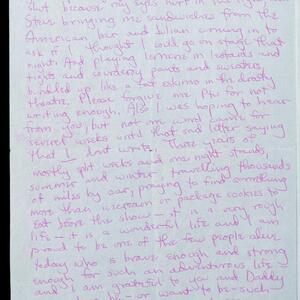 shut because my eyes hurt in the light.
Steve bringing me sandwiches from the
American bar and Lilian coming in to
ask if I thought I could go on stage that
night. And playing in leotards and
tights and corduroy pants and sweaters
bundled up like a fat eskimo in the drafty
theatre. Please forgive me for not
writing enough. Also I was hoping to hear
from you, but not one word came for
several weeks until that and letter saying
that don't write. Three years of
mostly split weeks and one night stands,
summer and winter travelling thousands
of miles by car, praying to find something
more than icecream or package cookies to
eat before the show — it is a very rough
life — it is a wonderful life and I am
proud to be one of the few people alive
today who is brave enough and strong
enough for such an adventurous life —
and I am grateful to you and Daddy
be — or want to be — such